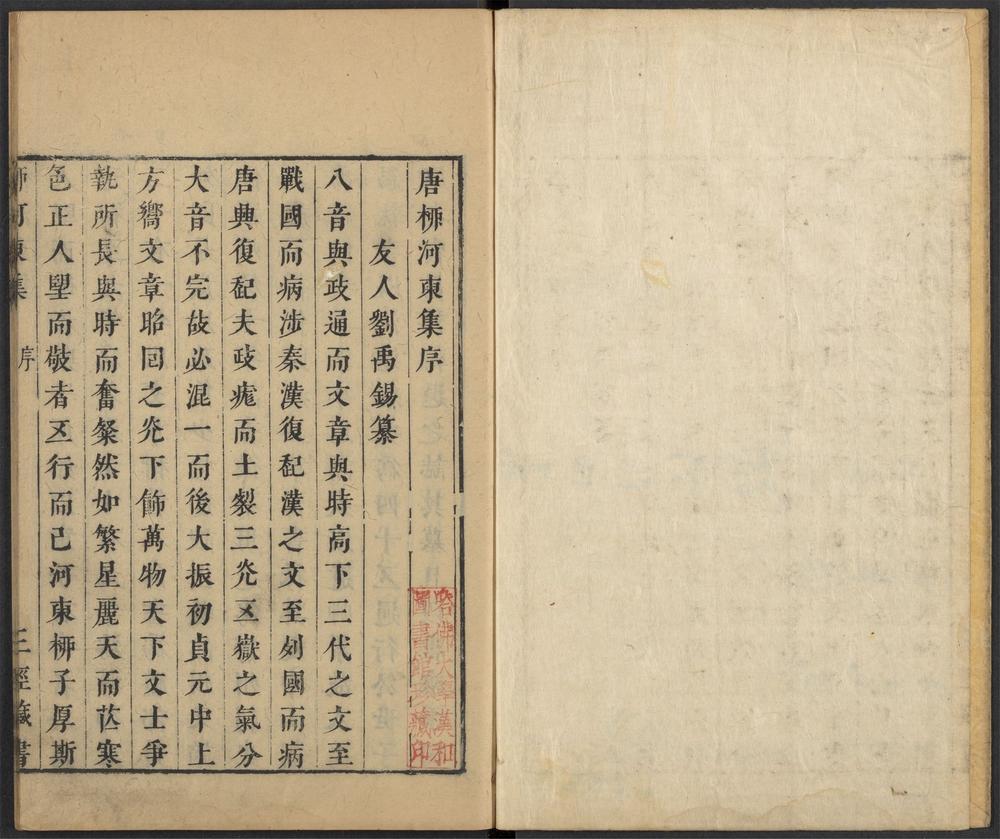 唐桺河東集序
友人劉禹錫纂
八音與政通而文章與時高下三代之文至
戰國而病涉秦漢復起漢之文至列國而病
唐興復起夫政痝而土裂三光五嶽之氣分
大音不完故必混一而後大振初貞元中上
方嚮文章昭回之光下飾萬物天下文士爭
執所長與時而奮粲然如繁星麗天而芒寒
色正人望而敬者五行而已河東桺子厚斯
桺河東集 序 三徑藏書
哈佛大學漢和
圖書館珍藏印